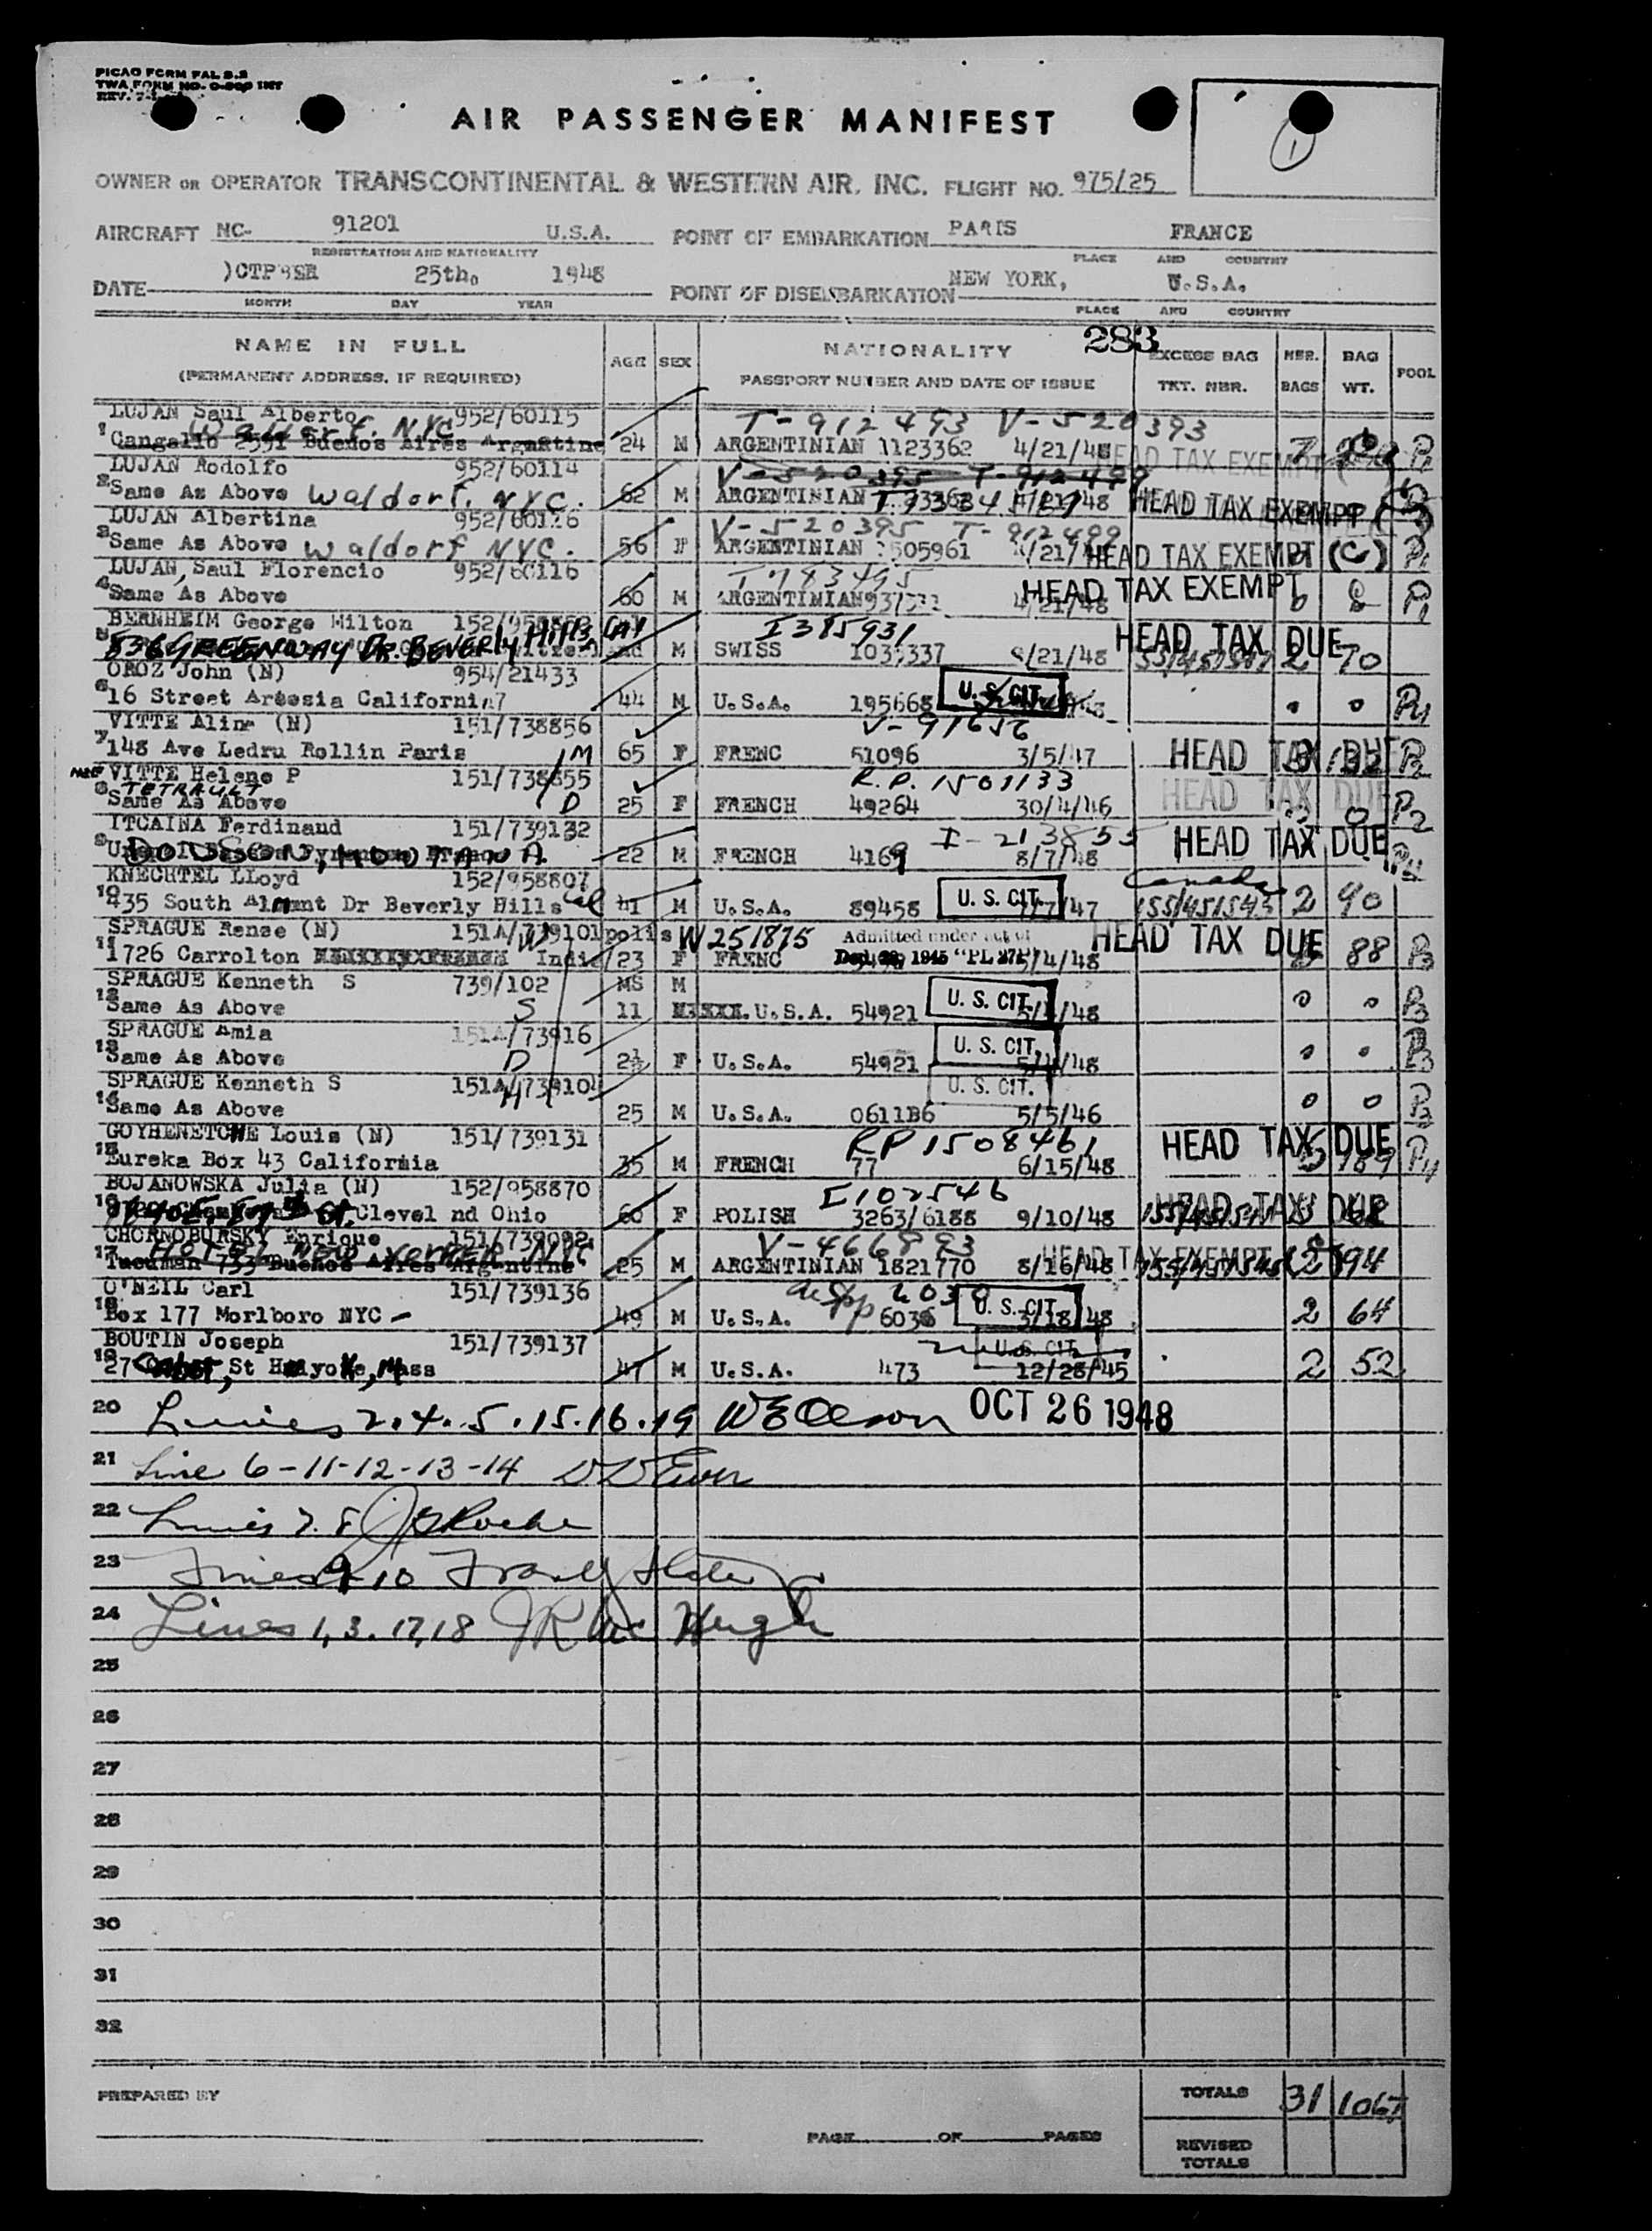 PICAO FORM FAL 2.2
TWA FORM NO. O-800 INT
REV.
AIR PASSENGER MANIFEST
1
OWNER OR OPERATOR TRANSCONTINENTAL & WESTERN AIR, INC. FLIGHT NO. 975/25
AIRCRAFT NC- 91201 U.S.A. POINT OF EMBARKATION PARIS FRANCE
REGISTRATION AND NATIONALITY PLACE AND COUNTRY
DATE )CTPBER 25th. 1948 POINT OF DISEMBARKATION NEW YORK, U.S.A.
MONTH DAY YEAR PLACE AND COUNTRY
283
NAME IN FULL AGE SEX NATIONALITY EXCESS BAG NBR. BAG POOL
(PERMANENT ADDRESS, IF REQUIRED) PASSPORT NUMBER AND DATE OF ISSUE TKT. NBR. BAGS WT.
LUJAN Saul Alberto 952/60115 T-912493 V-520393
Waldorf. NYC
1 Cangallo 2591 Buenos Aires Argentine 24 M ARGENTINIAN 1123362 4/21/48 HEAD TAX EXEMPT P1
LUJAN Rodolfo 952/60114 V-520395 T-912499
2 Same As Above Waldorf. NYC. 62 M ARGENTINIAN /21/48 HEAD TAX EXEMPT
LUJAN Albertina 952/60126 V-520395 T-912499
3 Same As Above Waldorf NYC. 56 F ARGENTINIAN 505961 /21/ HEAD TAX EXEMPT (C) P1
LUJAN, Saul Florencio 952/60116 T-783495
4 Same As Above 60 M ARGENTINIAN 4/21/48 HEAD TAX EXEMPT P1
BERNHEIM George Milton I385931
5 536 GREENWAY DR. BEVERLY Hills CAL M SWISS 8/21/48 HEAD TAX DUE 2 70
OROZ John (N) 954/21433
6 16 Street Artesia California 44 M U.S.A. 195668 U. S. CIT. 0 0 P4
VITTE Aline (N) 151/738856 V-91656
7 148 Ave Ledru Rollin Paris M 65 F FRENC 51096 3/5/47 HEAD TAX DUE P2
VITTE Helene P 151/738855 R.P. 1501133
TETRAULT
8 Same As Above D 25 F FRENCH 49264 30/4/46 HEAD TAX DUE 0 P2
ITCAINA Ferdinand 151/739132 I-213855
9 DODSON, MONTANA 22 M FRENCH 4169 8/7/48 HEAD TAX DUE P4
KNECHTEL LLoyd 152/958807 Canada
10 435 South Almont Dr Beverly Hills Cal 41 M U.S.A. 89458 U. S. CIT. /47 155/451543 2 90
SPRAGUE Renee (N) 151A/739101 polis W251875 Admitted under act of HEAD TAX DUE
11 1726 Carrolton India W 23 F FRENC Dec. 28, 1945 "PL 271" /4/48 88 P3
SPRAGUE Kenneth S 739/102 MS M
12 Same As Above S 11 U.S.A. 54921 U. S. CIT. /48 0 0 P3
SPRAGUE Amia 151A/73916
13 Same As Above D 2½ F U.S.A. 54921 U. S. CIT. 5/4/48 0 0 P3
SPRAGUE Kenneth S 151A/73910 U. S. CIT.
14 Same As Above H 25 M U.S.A. 0611B6 5/5/46 0 0 P3
GOYHENETCHE Louis (N) 151/739131 RP1508461
15 Eureka Box 43 California 35 M FRENCH 77 6/15/48 HEAD TAX DUE P4
BOJANOWSKA Julia (N) 152/958870 I102546
16 St. Clevel nd Ohio 60 F POLISH 3263/6188 9/10/48 HEAD TAX DUE
CHORNOBURSKY Enrique 151/739092 V-466893
HOTEL NEW YORKER NYC
17 Tucuman 733 Buenos Aires Argentine 25 M ARGENTINIAN 1821770 8/16/48 HEAD TAX EXEMPT 2 94
O'NEIL Carl 151/739136
18 Box 177 Morlboro NYC 49 M U.S.A. 6036 U. S. CIT. 3/18/48 2 64
BOUTIN Joseph 151/739137 U. S. CIT.
19 27 Cabot, St Holyoke, Mass 47 M U.S.A. 473 12/28/45 2 52
20 Lines 2.4.5.15.16.19 W E Olson OCT 26 1948
21 Line 6-11-12-13-14
22 Lines 7. 8 Roche
23 Lines 9 10
24 Lines 1,3.17,18 JR Mc Hugh
25
26
27
28
29
30
31
32
PREPARED BY
TOTALS 31 1067
PAGE OF PAGES
REVISED TOTALS